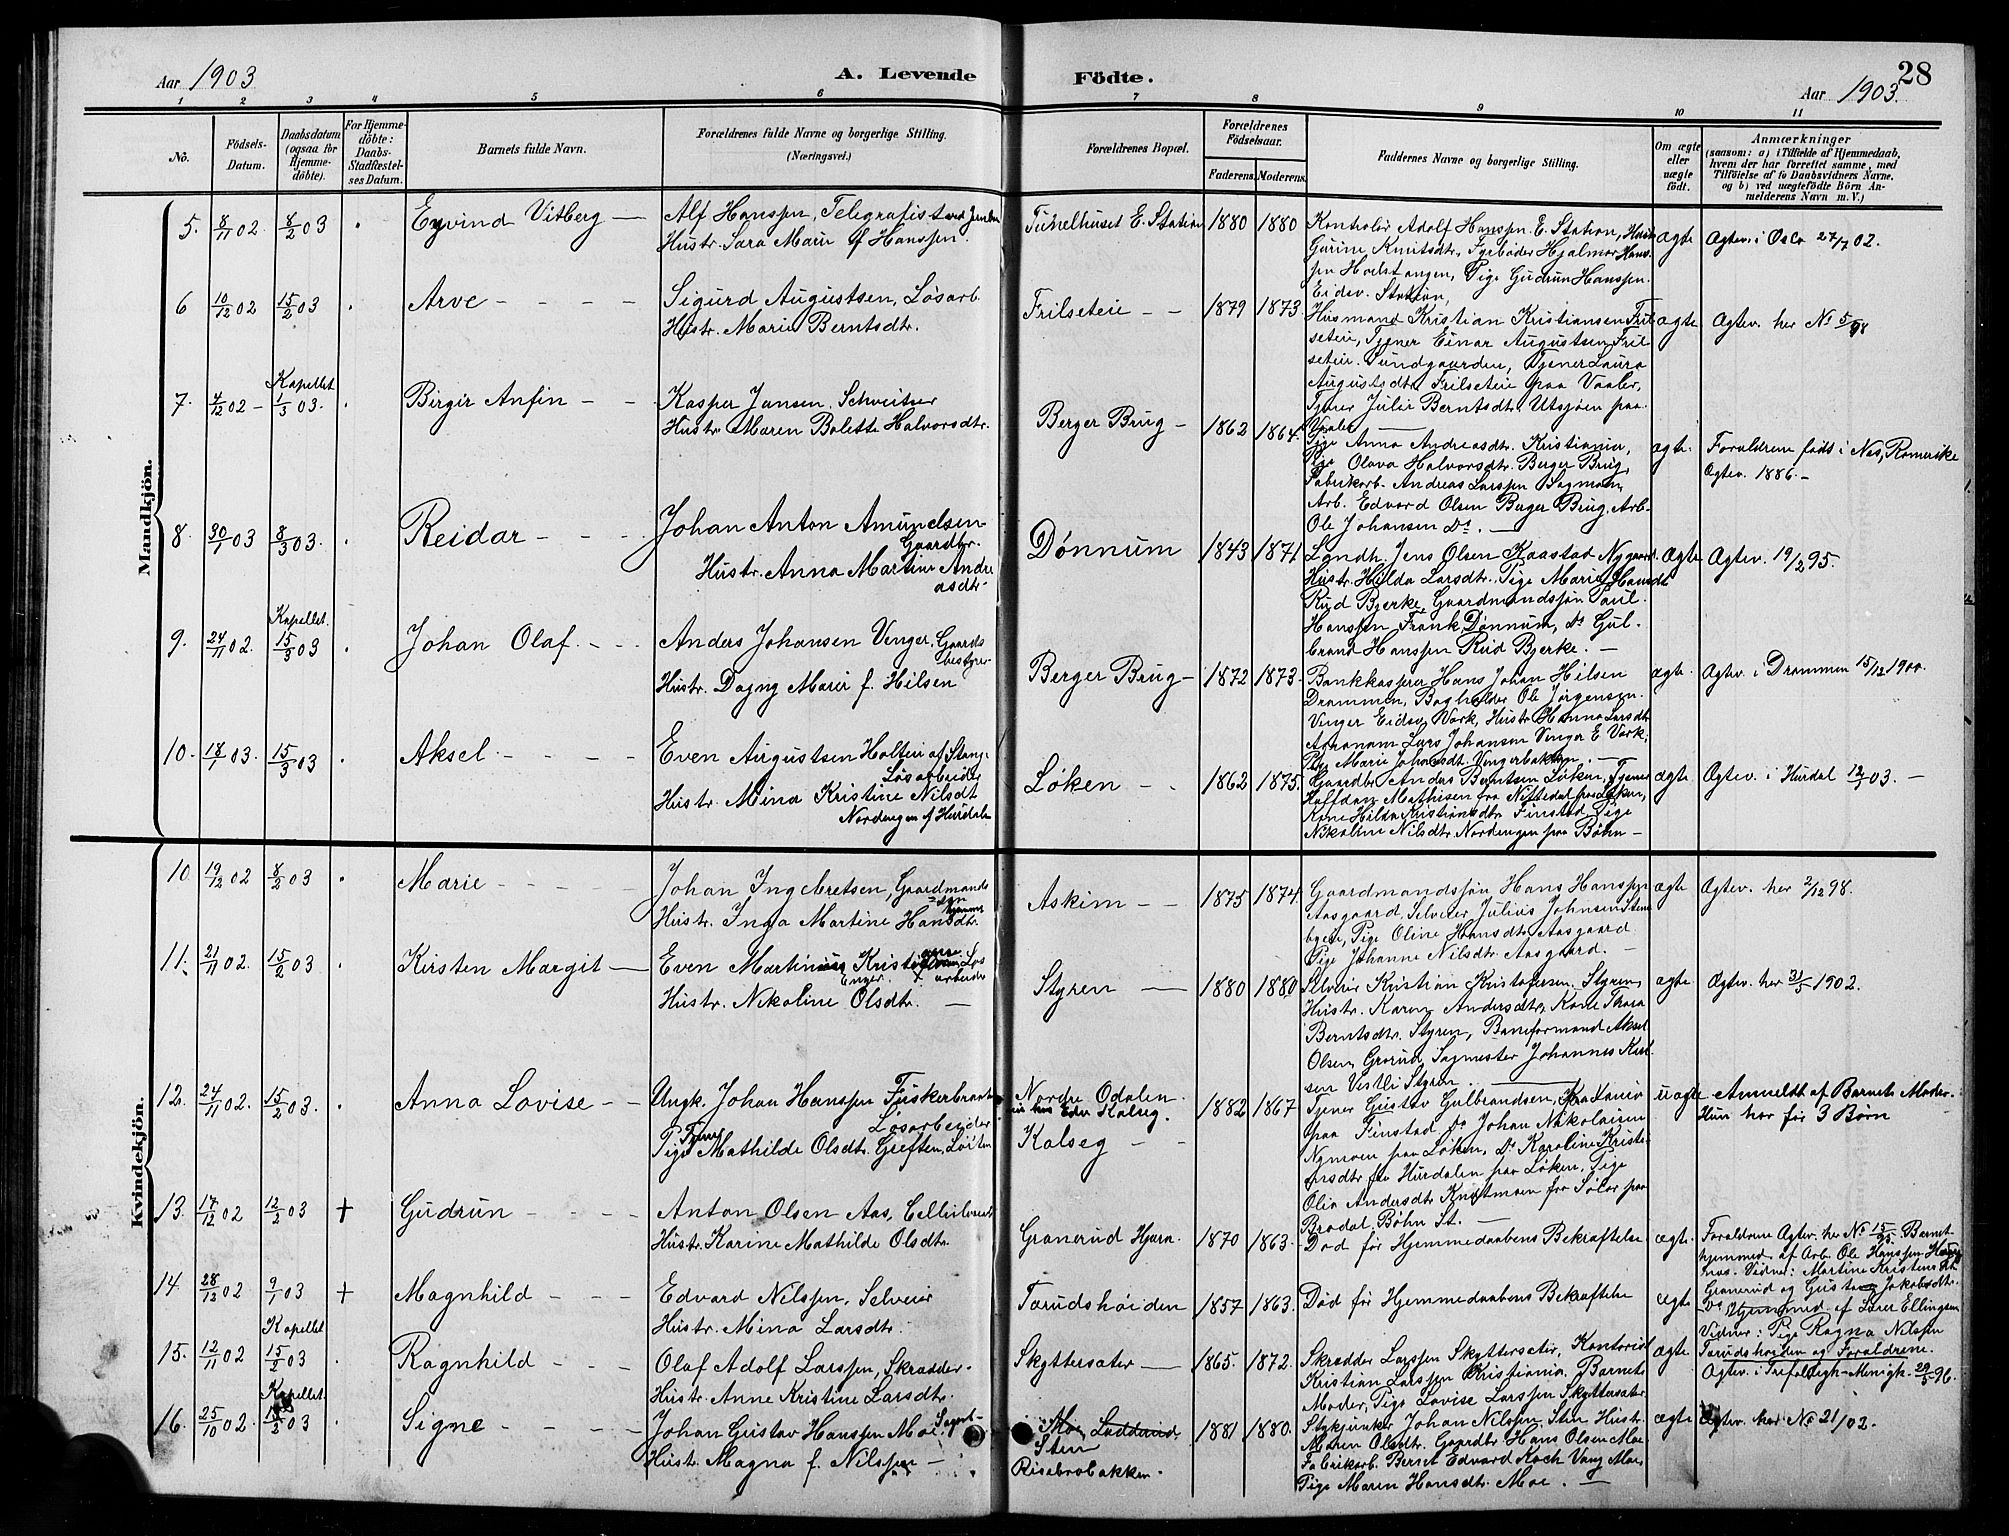 Aar 1903
A. Levende
Födte.
28
Aar 1903.
1 2 3 4 5 6 7 8 9 10 11
No.
Födsels-
Datum.
Daabsdatum
(ogsaa for
Hjemme-
döbte).
For Hjemme-
döbte:
Daabs-
Stadfæstel-
ses Datum.
Barnets fulde Navn.
Forældrenes fulde Navne og borgerlige Stilling.
(Næringsvei.)
Forældrenes Bopæl.
Forældrenes
Födselsaar.
Faderens. Moderens.
Faddernes Navne og borgerlige Stilling.
Om ægte
eller
uægte
födt.
Anmærkninger
(saasom: a) i Tilfælde af Hjemmedaab,
hvem der har forrettet samme, med
Tilföielse af to Daabsvidners Navne,
og b) ved uægtefödte Börn An-
melderens Navn m. V.)
Mandkjön.
5. 8/11 02 8/2 03 Eyvind Vitberg
Alf Hanssen, Telegrafist ved
Hustr. Sara Marie f Hanssen.
E. Station 1880 1880
Kontrolör Adolf Hanssen E. Station, Hustr
Gurine Knutsdtr, Fyrböder Hjalmar Hans-
sen Pige Gudrun Hanssen
Eidsv. Station,
ægte Ægtev. i Oslo 27/7 02.
6 10/12 02 15/2 03 Arve
Sigurd Augustsen, Løsarb.
Hustr. Marie Berntsdtr.
Frilseteie 1879 1873
Husmand Kristian Kristiansen Fril-
seteie, Tjener Einar Augustsen Fril-
seteie Sundgaarden, Tjener Laura
Augustsdtr Frilseteie paa Vaaler,
Tjener Julie Berntsdtr Utsjøen paa
Vaaler
ægte Ægtev. her No 5/98
7. 4/12 02 Kapellet 1/3 03. Birger Anfin
Kasper Jansen, Schveitser
Hustr. Maren Bolette Halvorsdtr.
Berger Brug 1862 1864.
Pige Anna Andreasdtr. Kristiania,
Pige Olava Halvorsdtr Berger Brug,
Fabrikarb. Andreas Larssen Sagmoen,
Arb. Edvard Olsen Berger Brug, Arb.
Ole Johansen Do.
ægte. Forældrene født i Nes, Romerike
Ægtev. 1886.
8. 30/1 03 8/3 03. Reidar
Johan Anton Amundsen
Gaardbr.
Hustr. Anna Martine Andre
asdtr.
Dønnum 1843 1871
Landh. Jens Olsen Kaastad Nygaard.
Hustr. Hilda Larsdtr., Pige Marie Hansdtr
Rud Bjerke, Gaardmandssøn Paul
Hanssen Frank Dønnum, Do Gul-
brand Hanssen Rud Bjerke.
ægte Ægtev. 19/2 95.
9. 24/11 02. Kapellet. 15/3 03 Johan Olaf
Anders Johansen Venger, Gaards
bestyrer
Hustr. Dagny Marie f. Hilsen
Berger Brug 1872 1873.
Bankkasserer Hans Johan Hilsen
Drammen, Bogholder Ole Jørgensen
Venger Eidsv. Værk, Hustr. Hanna Larsdtr
Lars Johansen Venger E Værk
Pige Marie Johansdt. Vengerbakken.
ægte. Ægtev. i Drammen 15/12 1900.
10. 18/1 03. 15/3 03 Aksel
Even Augustsen Holteie af Stange
Løsarbeider
Hustr. Mina Kristine Nilsdt
Nordengen af Hurdalen
Løken 1862 1875.
Gaardbr Anders Berntsen Løken, Tjener
Halfdan Mathisen fra Nittedal paa Løken,
Kone Hilda Kristiansdtr Finstad, Pige
Nikoline Nilsdtr. Nordengen paa Bøhn
ægte Ægtev. i Hurdal 03.
Kvindekjön.
10 19/12 02 8/2 03 Marie
Johan Ingebretsen, Gaardmands
søn
Hustr. Inga Martine Hansdtr.
Askim 1875 1874.
Gaardmandssøn Hans Hanssen
Aasgaard, Selveier Julius Johnsen Sten-
byeie, Pige Oline Hansdtr Aasgaard
Pige Johanne Nilsdtr. Aasgaard.
ægte Ægtev. her 2/12 98.
11. 21/11 02. 15/2 03 Kirsten Margit
Even Martinius Løs
Enger. arbeider
Hustr. Nikoline Olsdtr.
Styren 1880 1880
Selveier Kristian Kristofersen Styren,
Hustr. Karen Andersdtr, Kone Thora
Berntsdtr. Styren, Baneformand Aksel
Olsen Grorud, Sagmester Johannes
sen Vestli Styren.
ægte Ægtev. her 31/5 1902.
12. 24/11 02. 15/2 03. Anna Lovise
Ungk. Johan Hanssen
Løsarbeider
Tjener
Pige Mathilde Olsdtr. Løiten
Nordre Odalen
nu hos Edv Kalseg.
Kalseg
1882 1867
Tjener Gustav Gulbrandsen, Kristiania
paa Finstad, Do Johan Nikolaisen
Nymoen paa Løken, Do Karoline Kristi-
ansdtr fra Hurdalen paa Løken, Pige
Olia Andersdtr Knutmoen fra Solør paa
Brødal, Bøhn St.
uægte Anmeldt af Barnets Moder.
Hun har før 3 Børn
13. 17/12 02 12/2 03 + Gudrun
Anton Olsen Aas,
Hustr. Karine Mathilde Olsdtr.
Granerud 1870 1863.
Død før Hjemmedaabens Bekræftelse
ægt. Forældrene Ægtev. her No 15/95. Barnet
hjemmed. af Arb. Ole Hanssen
Vidner: Martine Kristens dt.
Granerud og Jakobsdtr.
14. 28/12 02 9/1 03 + Magnhild
Edvard Nilssen, Selveier
Hustr. Mina Larsdtr.
Tørudshøiden 1857 1863.
Død før Hjemmedaabens Bekræftelse
ægte Do Hjemmed af Lærer Ellingsen
Vidner: Pige Ragna Nilssen
Tørudshøiden og Forældrene.
15. 12/11 02 Kapellet 15/2 03 Ragnhild
Olaf Adolf Larssen, Skrædder
Hustr. Anne Kristine Larsdtr.
Skyttersæter 1865. 1872.
Skrædder Larssen Skyttersæter, Kontorist
Kristian Larssen Kristiania, Barnets
Moder, Pige Lovise Larssen Skyttersæter
ægte Ægtev. i Trefoldigh-Menigh. 29/5 96.
16. 25/10 02. Kapellet 03 Signe
Johan Gustav Hanssen Moe,
Hustr. Magna f. Nilssen
Sten
Risebrobakken.
1881 1880.
Stykjunker Johan Nilssen Sten, Hustr.
Maren Olsdtr. Gaardbr Hans Olsen Moe
Fabrikarb. Bernt Edvard Koch Vang Moe,
Pige Maren Hansdtr. Moe.
ægte Ægtev. her No 21/02.